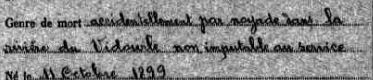 Genre de mort accidentellement par noyade dans la
rivière du Vidourle non imputable au service
Né le 11 Octobre 1899